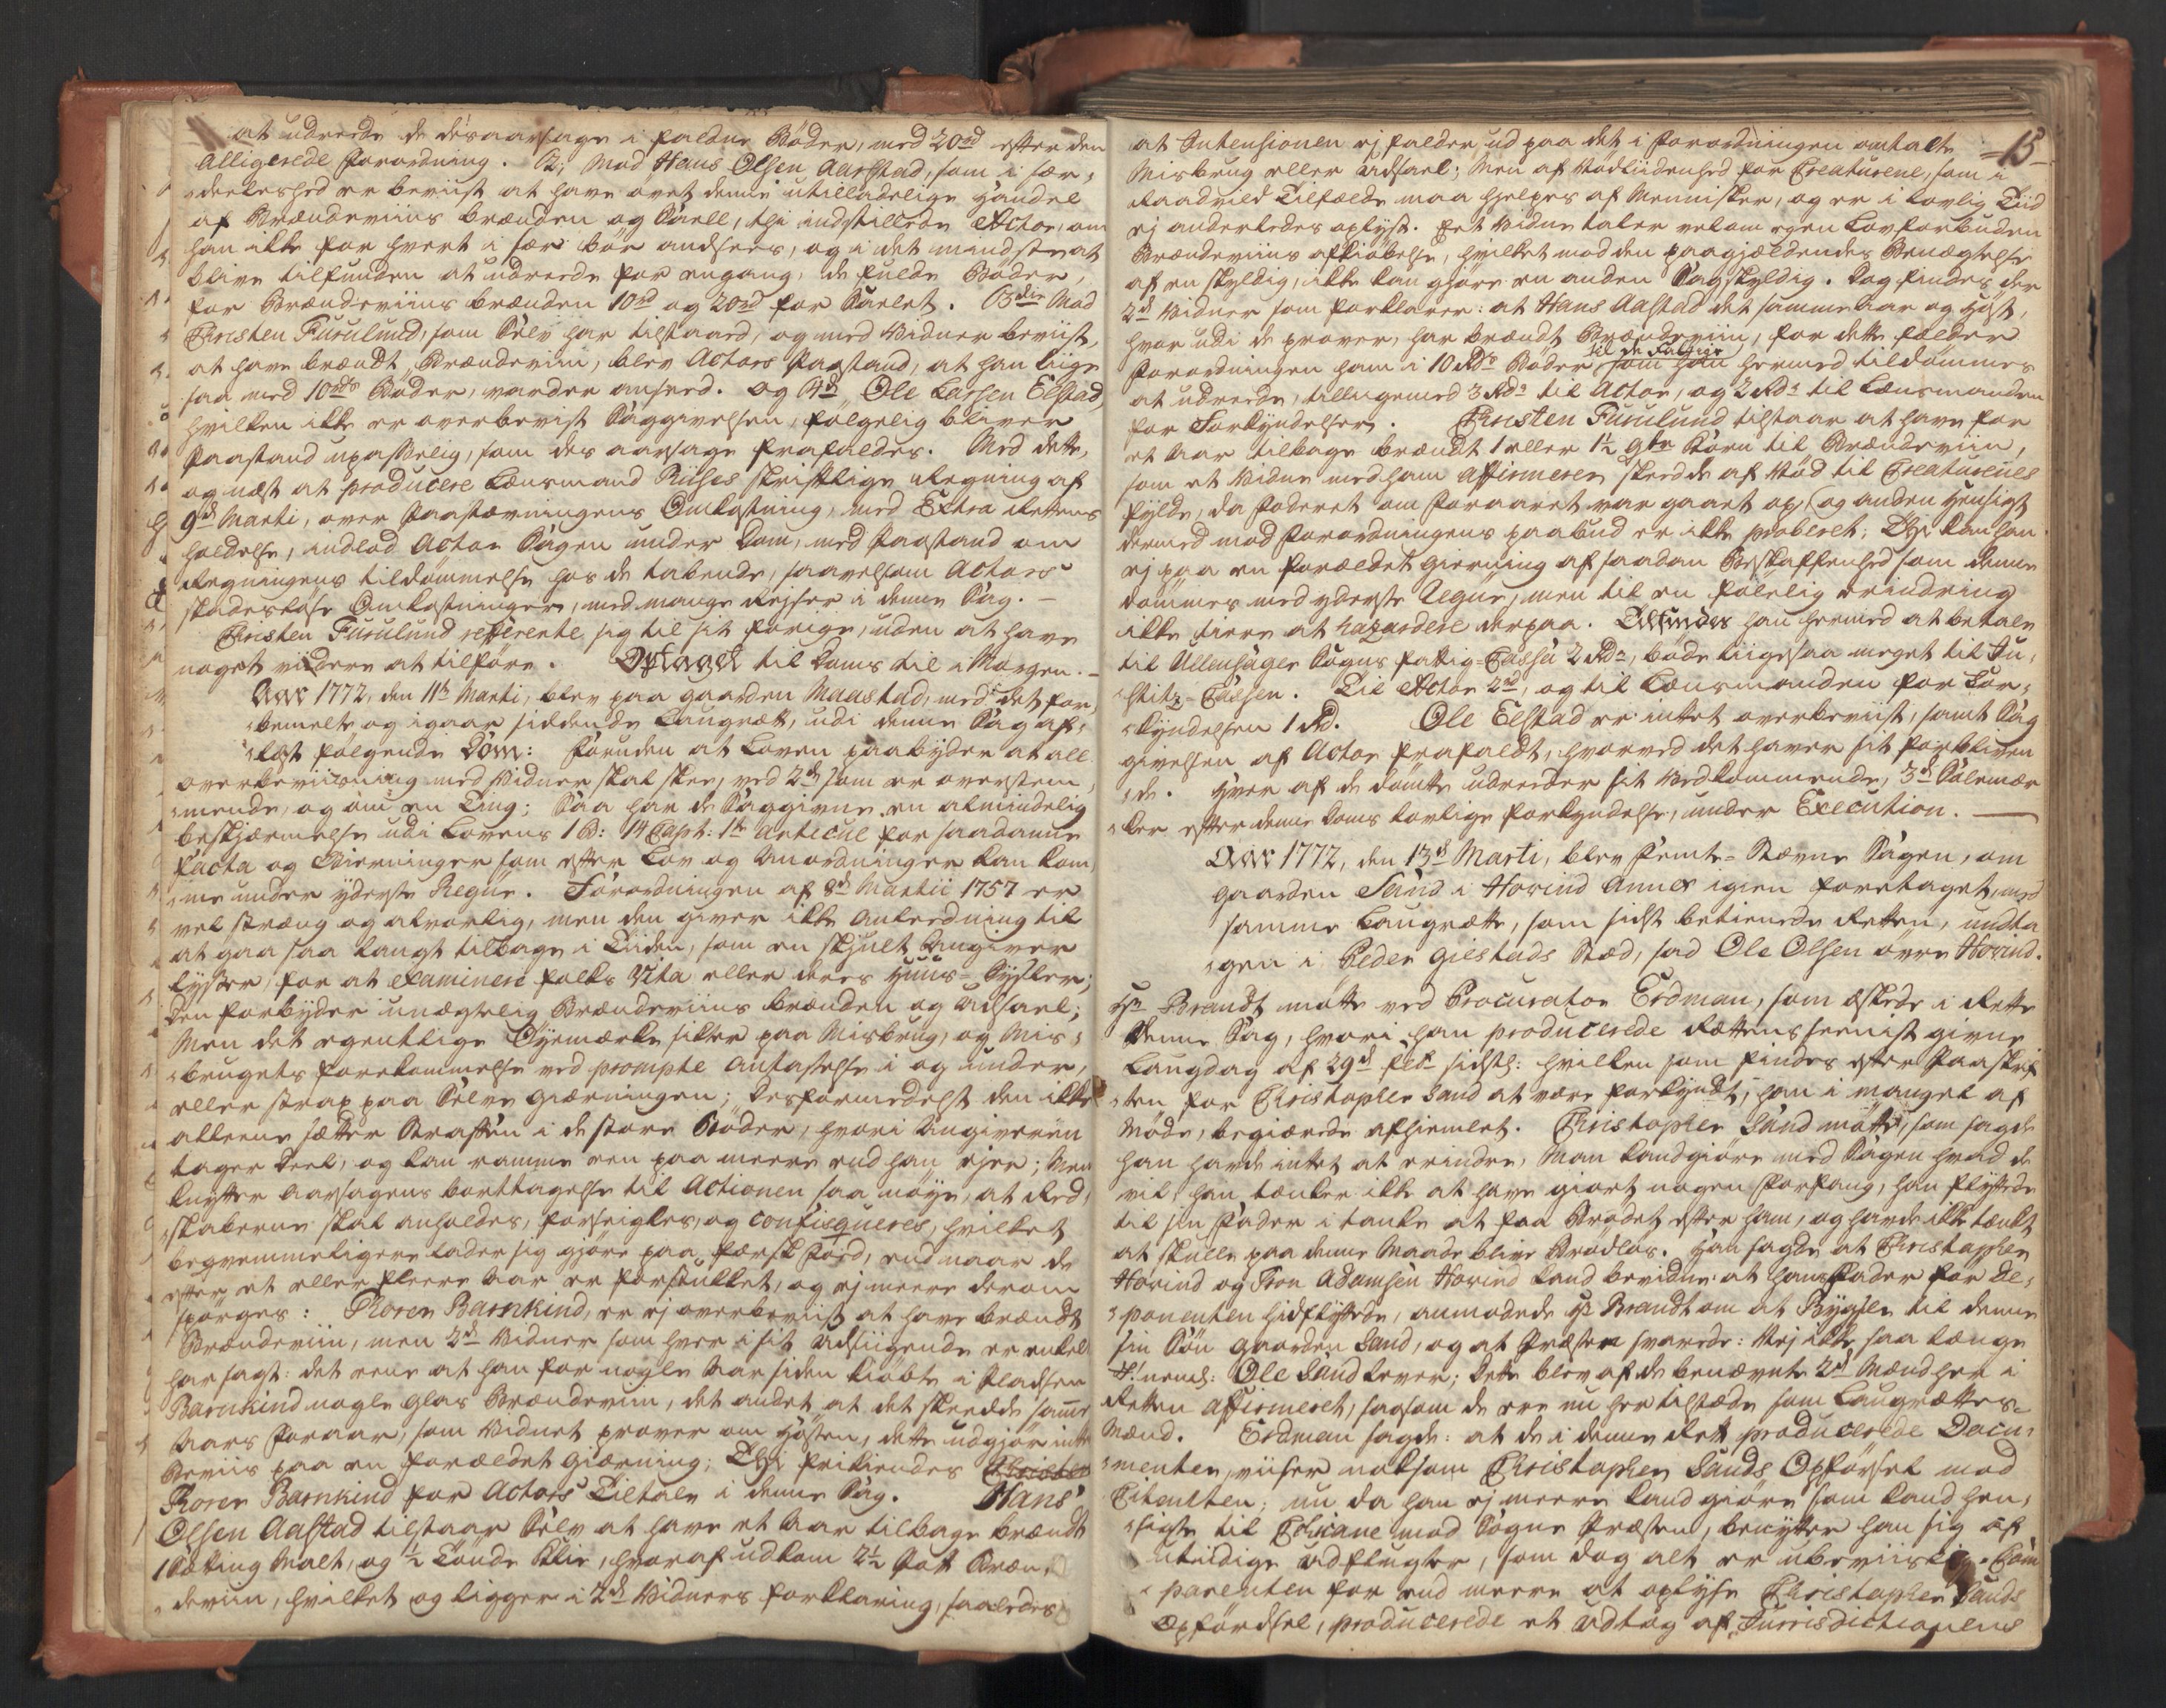 at udreede de desaarsage i faldne Bøder, med 20rd efter den
Alligerede Forordning. 2; Mod Hans Olsen Aarstad, som i sær-
deeleshed er beviist at have øvet denne utilladelige Handel
af Brændeviins brænden og Saell, thi indstillede Actor, om
han ikke for hvert i sær bør andsees, og i det mindste at
blive tilfunden at udreede for engang, de fulde Bøder,
for Brændeviins brænden 10rd og 20rd for Saelet. 3die Mod
Christen Furulund, som Selv har tilstaaed, og med Vidner beviist,
at have brændt Brændeviin, blev Actors Paastand, at han liige
saa med 10rds Bøder, vorder anseed. og 4de Ole Larsen Elstad,
hvilken ikke er overbevist Saggivelsen, følgelig bliver
Paastand upasselig, som des aarsage frafaldes. Med dette,
og næst at producere Lænsmand Riises skriftlige Regning af
9de Marti, over Paastævningens Omkostning, med Extra Rettens
holdelse, indlod Actor Sagen under Dom, med Paastand om
Regningens tildømmelse hos de tabende, saavelsom Actors
skadesløse Omkostninger, med mange Rejser i denne Sag. –
Christen Furulund refererte sig til sit forige, uden at have
noget viidere at tilføre. Optaget til Doms til i Morgen. –
Aar 1772, den 11te Marti, blev paa gaarden Maastad, med det for-
bemelte og igaar siddende Laugrett, udi denne Sag af-
sagt følgende Dom: Foruden at Loven paabyder at all
overbeviisning med Vidner skal skee, ved 2de som er overstem-
mende, og om en Ting; Saa har de Saggivne en almindelig
beskjærmelse udi Lovens 1 B: 14 Capt: 1te Artecul for saadanne
Facta og Gierninger som efter Lov og Anordninger kan kom-
me under yderste Regue. Forordningen af 8de Martii 1757 er
vel streng og alvorlig, men den giver ikke Anleedning til
at gaa saa langt tilbage i Tiiden, som en skjult Angiver
lyster, for at examinere folks Vita eller deres Huus-Sysler;
Den forbyder unægtelig Brændeviins brænden og Udsael;
Men det egentlige Øyemærke sikter paa Misbrug, og Mis-
brugets forekommelse ved prompte Antastelse i og under,
eller strax paa Selve Giærningen; Desformedelst den ikke
alleene sætter Straffen i de store Bøder, hvori Angiveren
tager Deel, og kan ramme een paa meere end han ejer; Men
knytter Aarsagens borttagelse til Actionen saa nøye, at Red-
skaberne skal anholdes, forseigles, og confisqueres, hvilket
beqvemmeligere lader sig gjøre paa færsk Foed, end naar de
efter et eller fleere Aar er forskulket, og ej meere derom
spørges: Thoren Barnkind, er ej overbeviist at have brændt
Brændeviin, men 2de Vidner som hver i sit Udsiigende er enkel
har sagt: det eene at han for nogle Aar siden kiøbte i Pladsen
Barnkind nogle glas Brændeviin, det andet at det skeedde samme
Aars Foraar, som Vidnet prover om Høsten, dette udgjør intet
Beviis paa en forældet Giærning; Thi frikiendes
Thoren Barnkind for Actors Tiltale i denne Sag. Hans
Olsen Aalstad tilstaar Selv at have et Aar tilbage brændt
1 Sæting Malt, og ½ Tønde Klie, hvoraf udkom 2½ Pott Bræn-
deviin, hvilket og ligger i 2de Vidners forklaring, saaledes
15
at Intensionen ej falder ud paa det i Forordningen omtalte
Misbrug eller Udsael; Men af Nødliidenhed for Creaturene, som i
Raadvild Tilfælde maa hjelpes af Mennisker, og er i lovlig Tiid
ej anderledes oplyst. Eet Vidne taler vel om egen Lovforbuden
Brændeviins afkiøbelse, hvilket mod den paagjældendes Benægtelse
af en skyldig, ikke kan gjøre en anden Sagskyldig. Dog findes der
2de Vidner som forklarer: at Hans Aalstad det samme Aar og Høst,
hvor udi de prover, har brændt Brændeviin, for dette falder
til de Fattige
Forordningen ham i 10 Rds Bøder som han hermed tildømmes
at udreede, tilligemed 3 Rds til Actor, og 2 Rds til Lænsmanden
for Forkyndelsen. Christen Furulund tilstaar at have for
et Aar tilbage brændt 1 eller 1½ qtr Korn til Brændeviin,
som et Vidne med ham affirmerer skeedde af Nød til Creaturenes
fylde, da Foderet om Foraaret var gaaet op, og anden Hensigt
dermed mod Forordningens paabud er ikke proberet; Thi kan han
ej paa en forældet gierning af saadan Beskaffenhed som denne
dømmes med yderste Regue, men til en følelig erindring
ikke fleere at hazardere derpaa. Tilfindes han hermed at betale
til Ullensager Sogns fattig-Cassa 2 Rds, bøde liigesaa meget til Ju-
stitz-Cassen. Til Actor 2rd, og til Lænsmanden for For-
kyndelsen 1 Rd. Ole Elstad er intet overbeviist, samt Sag
givelsen af Actor frafaldt, hvorved det haver sit forblivende
de. Hver af de dømte udreeder sit Vedkommende, 3de Solemær
ker efter denne Doms lovlige forkyndelse, under Execution. —
Aar 1772, den 13de Marti, blev Femte-Stævne Sagen, om
gaarden Sand i Hovind Annex igien foretaget, med
samme Laugrette, som sidst betienede Retten, undta-
gen i Peder Gielstads Stæd, sad Ole Olsen øvre Hovind.
Hr. Brandt møtte ved Procurator Erdman, som æskede i Rette
denne Sag, hvori han producerede Rettens seenist givne
Laugdag af 29de Febr sidstl: hvilken som findes efter Paaskrif-
ten for Christopher Sand at være forkyndt, han i mangel af
Møde, begiærede afhiemlet. Christopher Sand møtte, som sagde
han havde intet at erindre, Man kand giøre med Sagen hvad de
vil, han tænker ikke at have giort nogen Forfang, han flyttede
til sin Fader i tanke at faa Brødet efter ham, og havde ikke tænkt
at skulle paa denne Maade blive Brødløs. Han sagde at Christopher
Hovind og Iton Adamsen Hovind kand bevidne at hans Fader før De-
ponenten hidflyttede, anmodede Hr Brandt om at Bygsle til denne
sin Søn gaarden Sand, og at Præsten svarede: Nej ikke saa længe
nemlig: Ole Sand lever; Dette blev af de benævnte 2de Mænd her i
Retten affirmeret, saasom de ere nu her tilstæde som Laugrettes-
Mænd. Erdman sagde: at de i denne Rett producerede Docu-
menter, viiser noksom Christopher Sands Opførsel mod
Citanten; nu da han ej meere kand giøre som kand hen-
sigte til Chicane mod Sogne Præsten, benytter han sig af
utiidige Udflugter, som dog alt er ubeviislig. Com-
parenten for end meere at oplyse Christopher Sands
Opførdsel, producerede et Udtog af Jurrisdictionens